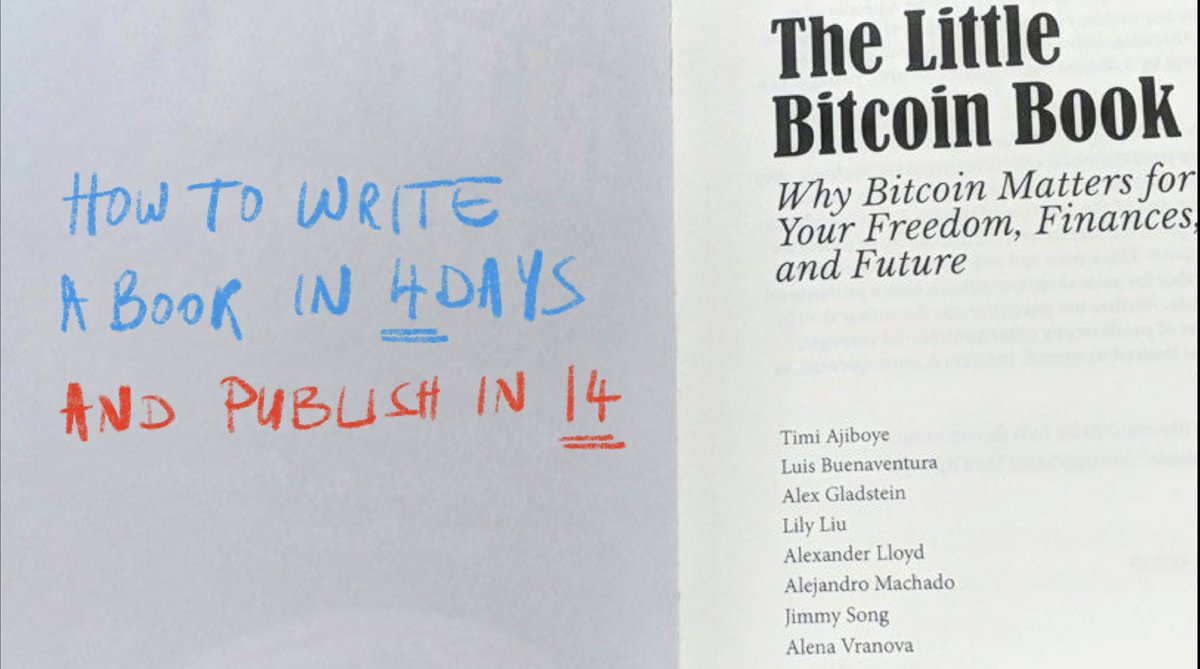 HOW TO WRITE
A BOOK IN 4 DAYS
AND PUBLISH IN 14
The Little
Bitcoin Book
Why Bitcoin Matters for
Your Freedom, Finances,
and Future
Timi Ajiboye
Luis Buenaventura
Alex Gladstein
Lily Liu
Alexander Lloyd
Alejandro Machado
Jimmy Song
Alena Vranova